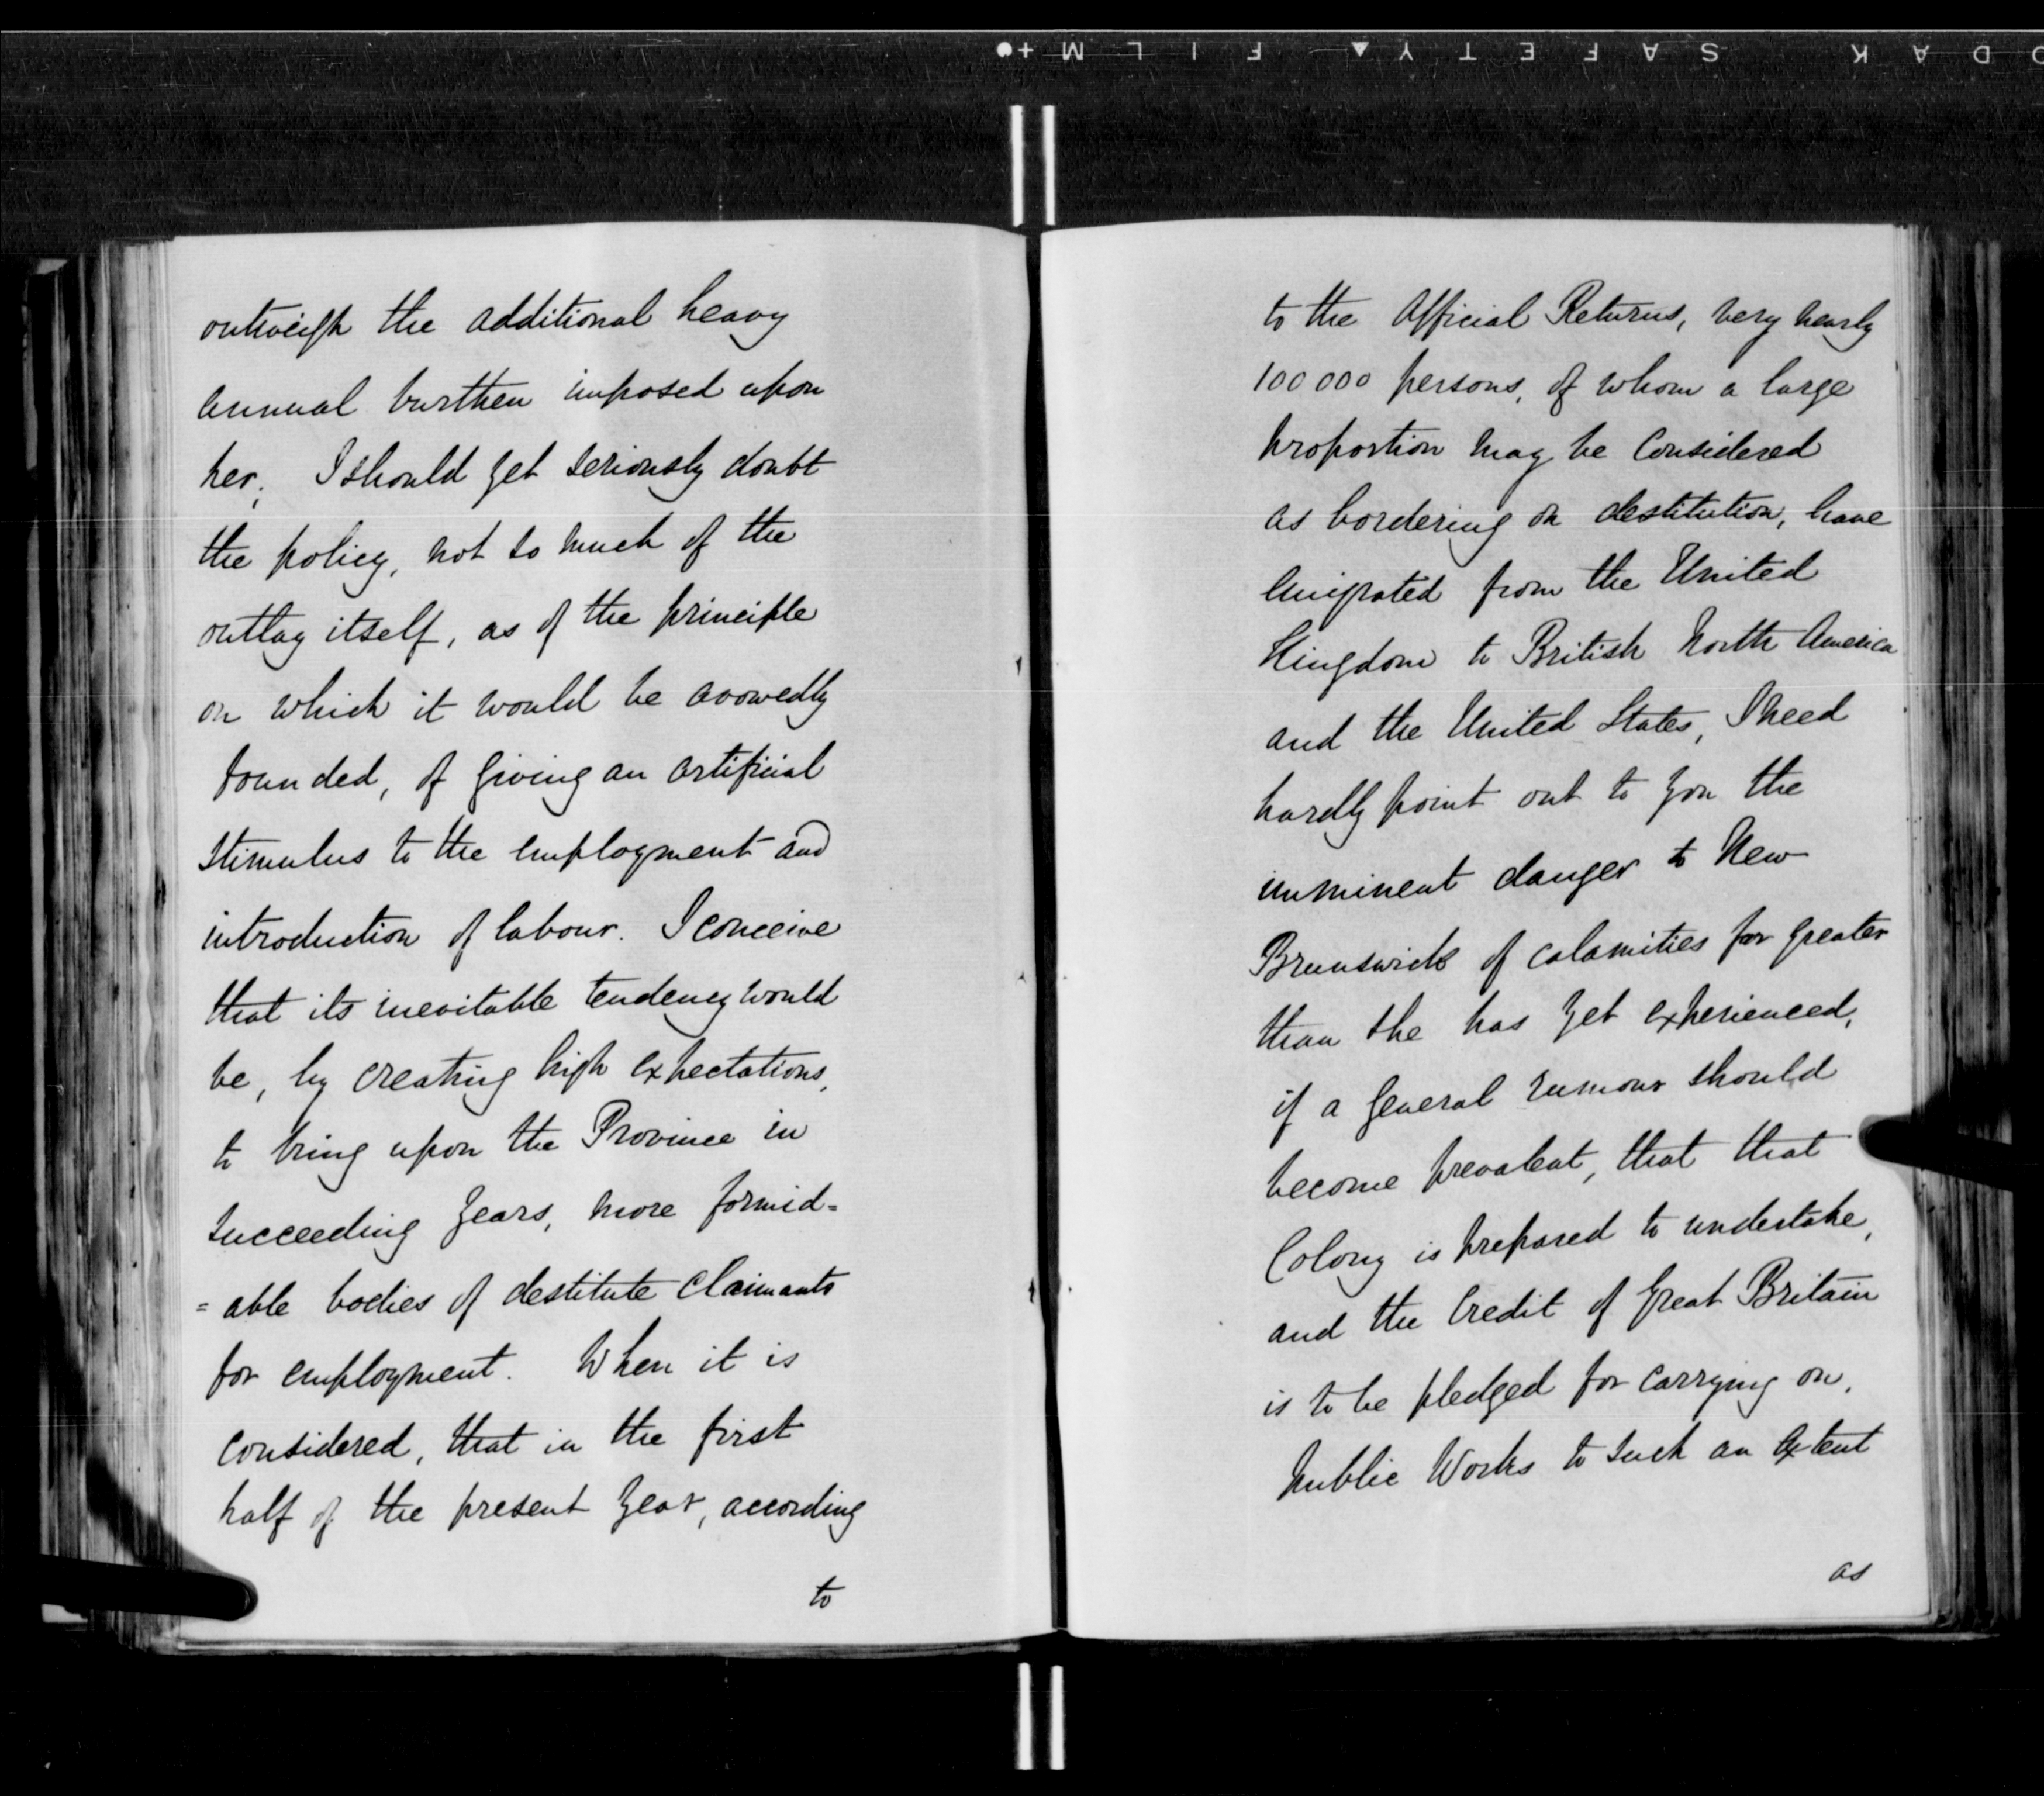 KODAK SAFETY▲ FILM +●
outweigh the additional heavy
annual burthen imposed upon
her; I should yet seriously doubt
the policy, not so much of the
outlay itself, as of the principle
on which it would be avowedly
founded, of giving an artificial
stimulus to the employment and
introduction of labour. I conceive
that its inevitable tendency would
be, by creating high expectations,
to bring upon the Province in
succeeding years, more formid=
=able bodies of destitute Claimants
for employment. When it is
considered, that in the first
half of the present year, according
to
to the Official Returns, very nearly
100 000 persons, of whom a large
proportion may be considered
as bordering on destitution, have
emigrated from the United
Kingdom to British North America
and the United States, I need
hardly point out to you the
imminent danger to New
Brunswick of calamities far greater
than she has yet experienced,
if a general rumour should
become prevalent, that that
Colony is prepared to undertake,
and the Credit of Great Britain
is to be pledged for carrying on,
public Works to such an extent
as